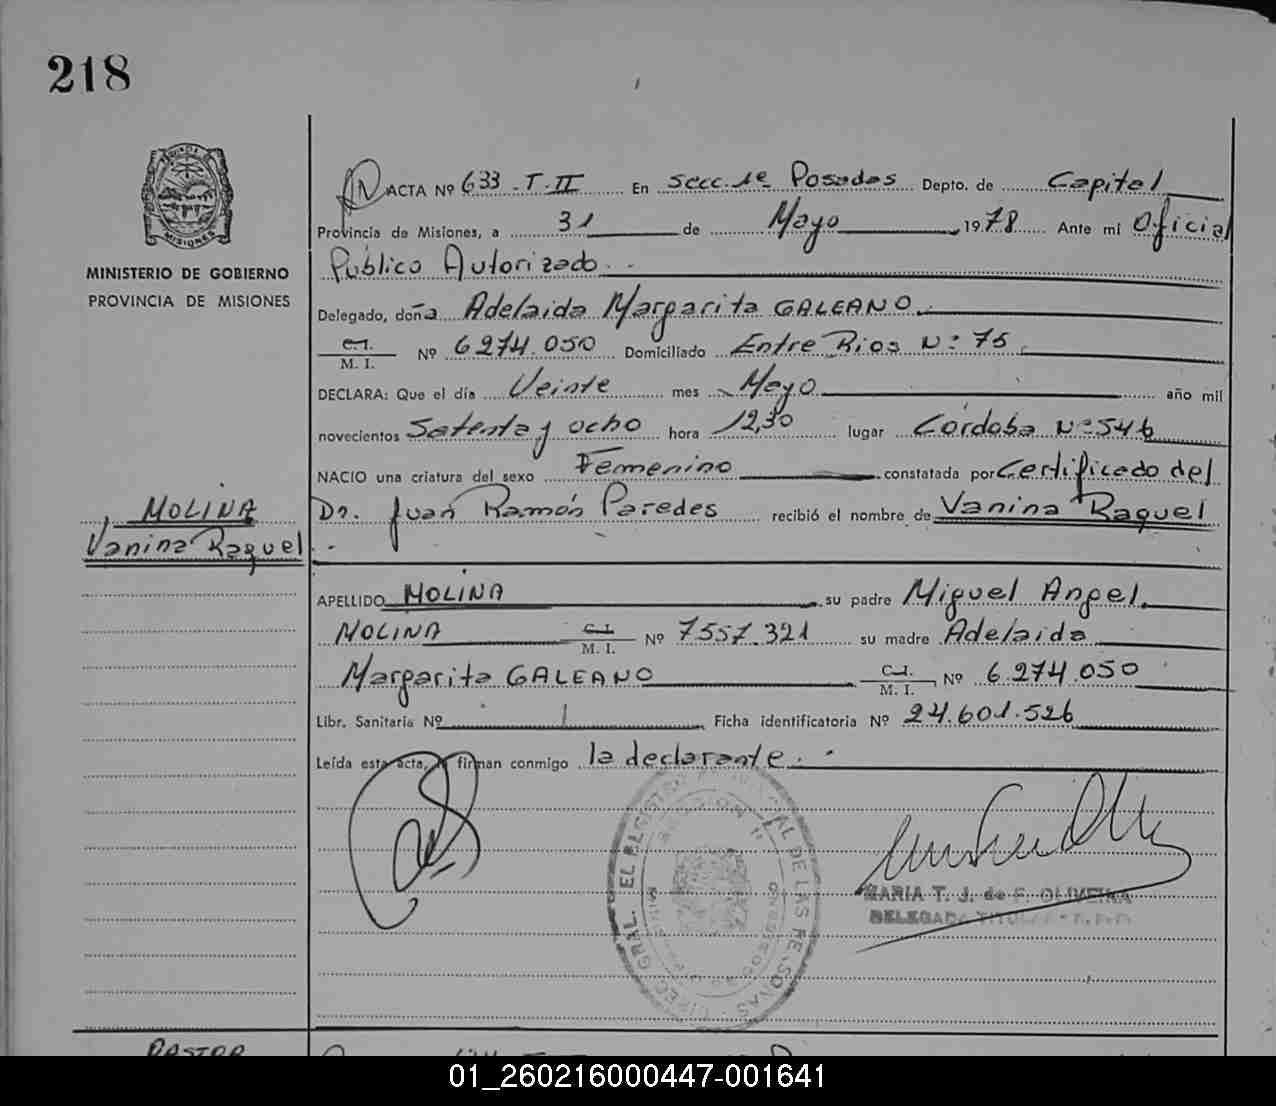 218
MINISTERIO DE GOBIERNO
PROVINCIA DE MISIONES
MISIONES
ACTA Nº 633 - T. II En Secc. 1ª Posadas Depto. de Capital
Provincia de Misiones, a 31 de Mayo 1978 Ante mi Oficial
Público Autorizado.
Delegado, doña Adelaida Margarita GALEANO.
C.I. M. I. Nº 6274.050 Domiciliado Entre Rios Nº 75
DECLARA: Que el día Veinte mes Mayo año mil
novecientos Setenta y ocho hora 12,30 lugar Córdoba Nº 546
NACIO una criatura del sexo Femenino constatada por Certificado del
Dr. Juan Ramón Paredes recibió el nombre de Vanina Raquel
MOLINA
Vanina Raquel
APELLIDO MOLINA su padre Miguel Angel
MOLINA C.I. M. I. Nº 7557.321 su madre Adelaida
Margarita GALEANO C.I. M. I. Nº 6.274.050
Libr. Sanitaria Nº Ficha identificatoria Nº 24.601.526
Leída esta acta, firman conmigo la declarante.
MARIA T. J. de F. OLIVEIRA
DELEGADA TITULAR
PASTOR
01_260216000447-001641